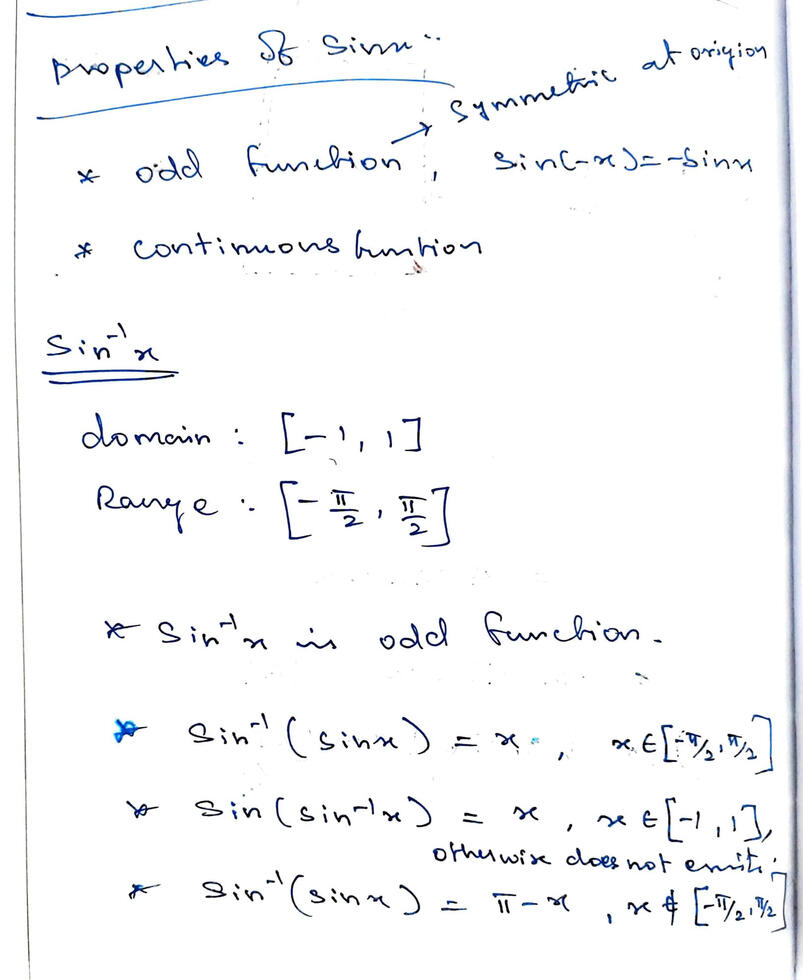 properties of sinx :-
→ symmetric at origion
* odd function, sin(-x)=-sinx
* continuous funtion
Sin⁻¹x
domain : [-1, 1]
Range : [-π/2, π/2]
* Sin⁻¹x is odd function.
* Sin⁻¹(sinx) = x, x ∈ [-π/2, π/2]
* Sin(sin⁻¹x) = x, x ∈ [-1, 1],
otherwise does not exists.
* Sin⁻¹(sinx) = π-x, x ∉ [-π/2, π/2]